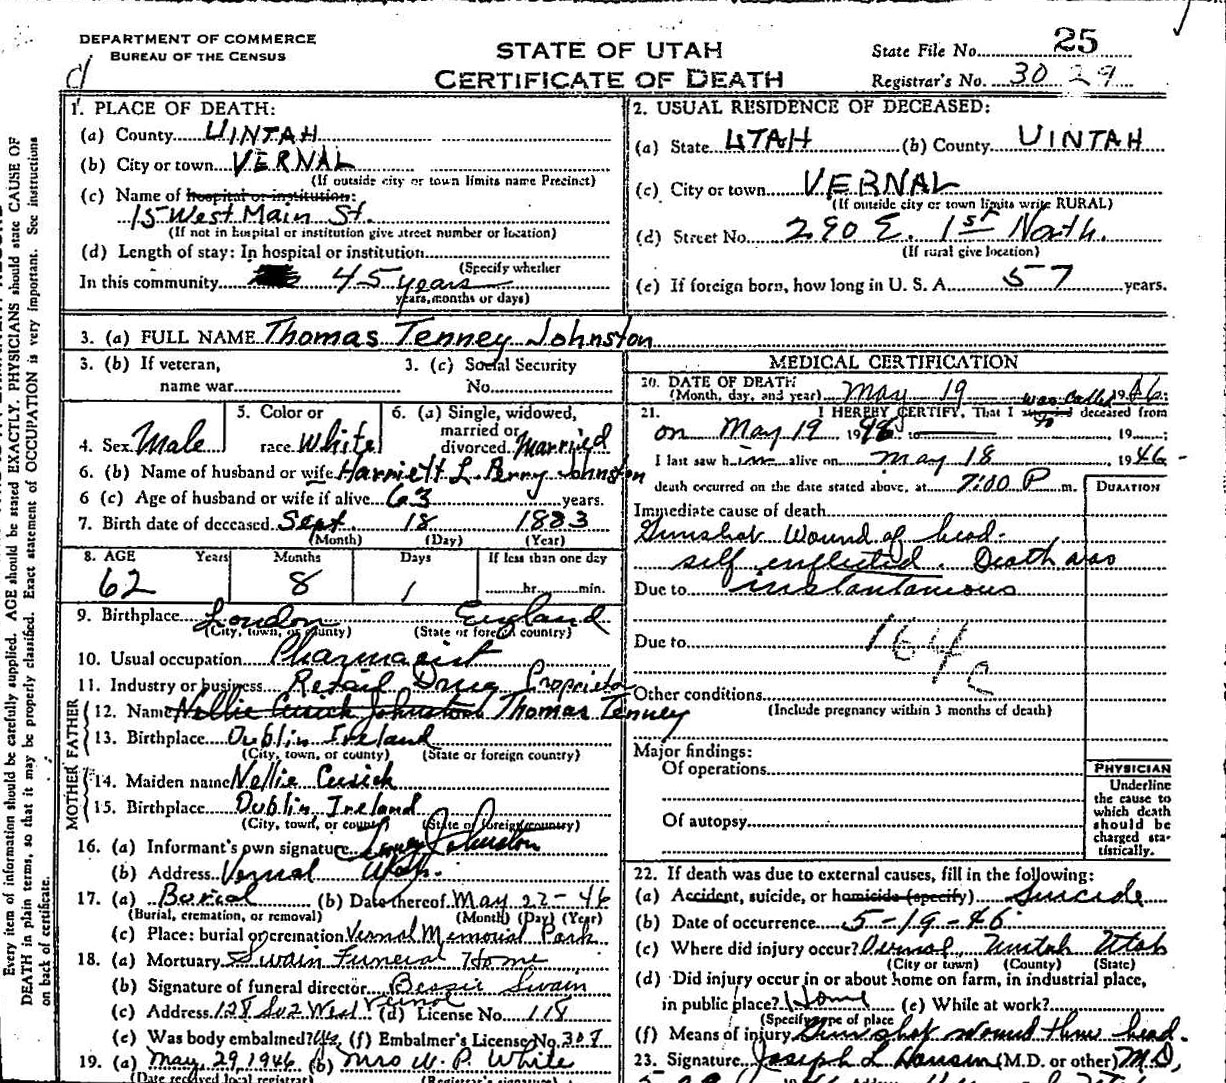 DEPARTMENT OF COMMERCE
BUREAU OF THE CENSUS
STATE OF UTAH
CERTIFICATE OF DEATH
State File No. 25
Registrar's No. 30 29
1. PLACE OF DEATH:
(a) County UINTAH
(b) City or town VERNAL
(If outside city or town limits name Precinct)
(c) Name of hospital or institution:
15 West Main St.
(If not in hospital or institution give street number or location)
(d) Length of stay: In hospital or institution
(Specify whether
In this community 45 years
years, months or days)
2. USUAL RESIDENCE OF DECEASED:
(a) State UTAH (b) County UINTAH
(c) City or town VERNAL
(If outside city or town limits write RURAL)
(d) Street No. 290 E. 1st North.
(If rural give location)
(e) If foreign born, how long in U. S. A. 57 years.
3. (a) FULL NAME Thomas Tenney Johnston
3. (b) If veteran, name war
3. (c) Social Security No.
4. Sex Male
5. Color or race White
6. (a) Single, widowed, married or divorced Married
6. (b) Name of husband or wife Harriett L Perry Johnston
6 (c) Age of husband or wife if alive 63 years.
7. Birth date of deceased Sept. 18 1883
(Month) (Day) (Year)
8. AGE Years Months Days If less than one day
62 8 1 hr. min.
9. Birthplace London England
(City, town, or county) (State or foreign country)
10. Usual occupation Pharmacist
11. Industry or business Retail Drug Proprietor
FATHER
12. Name Nellie Cusick Johnston Thomas Tenney
13. Birthplace Dublin Ireland
(City, town, or county) (State or foreign country)
MOTHER
14. Maiden name Nellie Cusick
15. Birthplace Dublin Ireland
(City, town, or county) (State or foreign country)
16. (a) Informant's own signature Johnston
(b) Address Vernal Utah.
17. (a) Burial (b) Date thereof May 22-46
(Burial, cremation, or removal) (Month) (Day) (Year)
(c) Place: burial or cremation Vernal Memorial Park
18. (a) Mortuary Swain Funeral Home
(b) Signature of funeral director Bessie Swain
(c) Address 128 So 2 West Vernal (d) License No. 118
(e) Was body embalmed? (f) Embalmer's License No. 307
19. (a) May 29, 1946 (b) Mrs W. P. White
(Date received local registrar) (Registrar's signature)
MEDICAL CERTIFICATION
20. DATE OF DEATH
(Month, day, and year) May 19 1946
21. I HEREBY CERTIFY, That I was called deceased from
on May 19 1946 to , 19 ;
I last saw him alive on May 18 1946-
death occurred on the date stated above, at 7:00 P m.
DURATION
Immediate cause of death
Gunshot Wound of head-
self enflicted. Death was
Due to instantaneous
Due to
164c
Other conditions
(Include pregnancy within 3 months of death)
Major findings:
Of operations
Of autopsy
PHYSICIAN
Underline
the cause to
which death
should be
charged sta-
tistically.
22. If death was due to external causes, fill in the following:
(a) Accident, suicide, or homicide (specify) Suicide
(b) Date of occurrence 5-19-46
(c) Where did injury occur? Vernal, Uintah Utah
(City or town) (County) (State)
(d) Did injury occur in or about home on farm, in industrial place,
in public place? Home (e) While at work?
(Specify type of place
(f) Means of injury Gunshot wound thru head.
23. Signature Joseph L Hansen (M.D. or other) M.D.
Every item of information should be carefully supplied. AGE should be stated EXACTLY. PHYSICIANS should state CAUSE OF
DEATH in plain terms, so that it may be properly classified. Exact statement of OCCUPATION is very important. See instructions
on back of certificate.